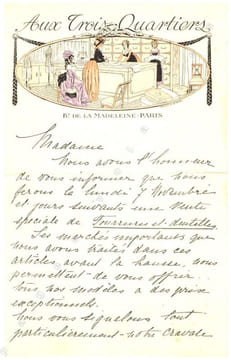 Aux Trois Quartiers
Bd DE LA MADELEINE-PARIS
Madame
Nous avons l'honneur
de vous informer que nous
ferons le lundi 7 Novembre
et jours suivants une Vente
spéciale de Fourrures et dentelles.
Les marchés importants que
nous avons traités dans ces
articles avant la hausse, nous
permettent de vous offrir
tous nos modèles a des prix
exceptionnels.
Nous vous signalons tout
particulièrement notre Cravate